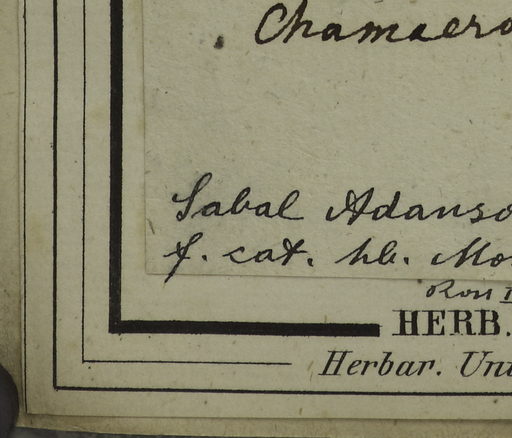 Chamaero
Sabal Adanso
f. cat. hb. Mo
HERB.
Herbar. Uni